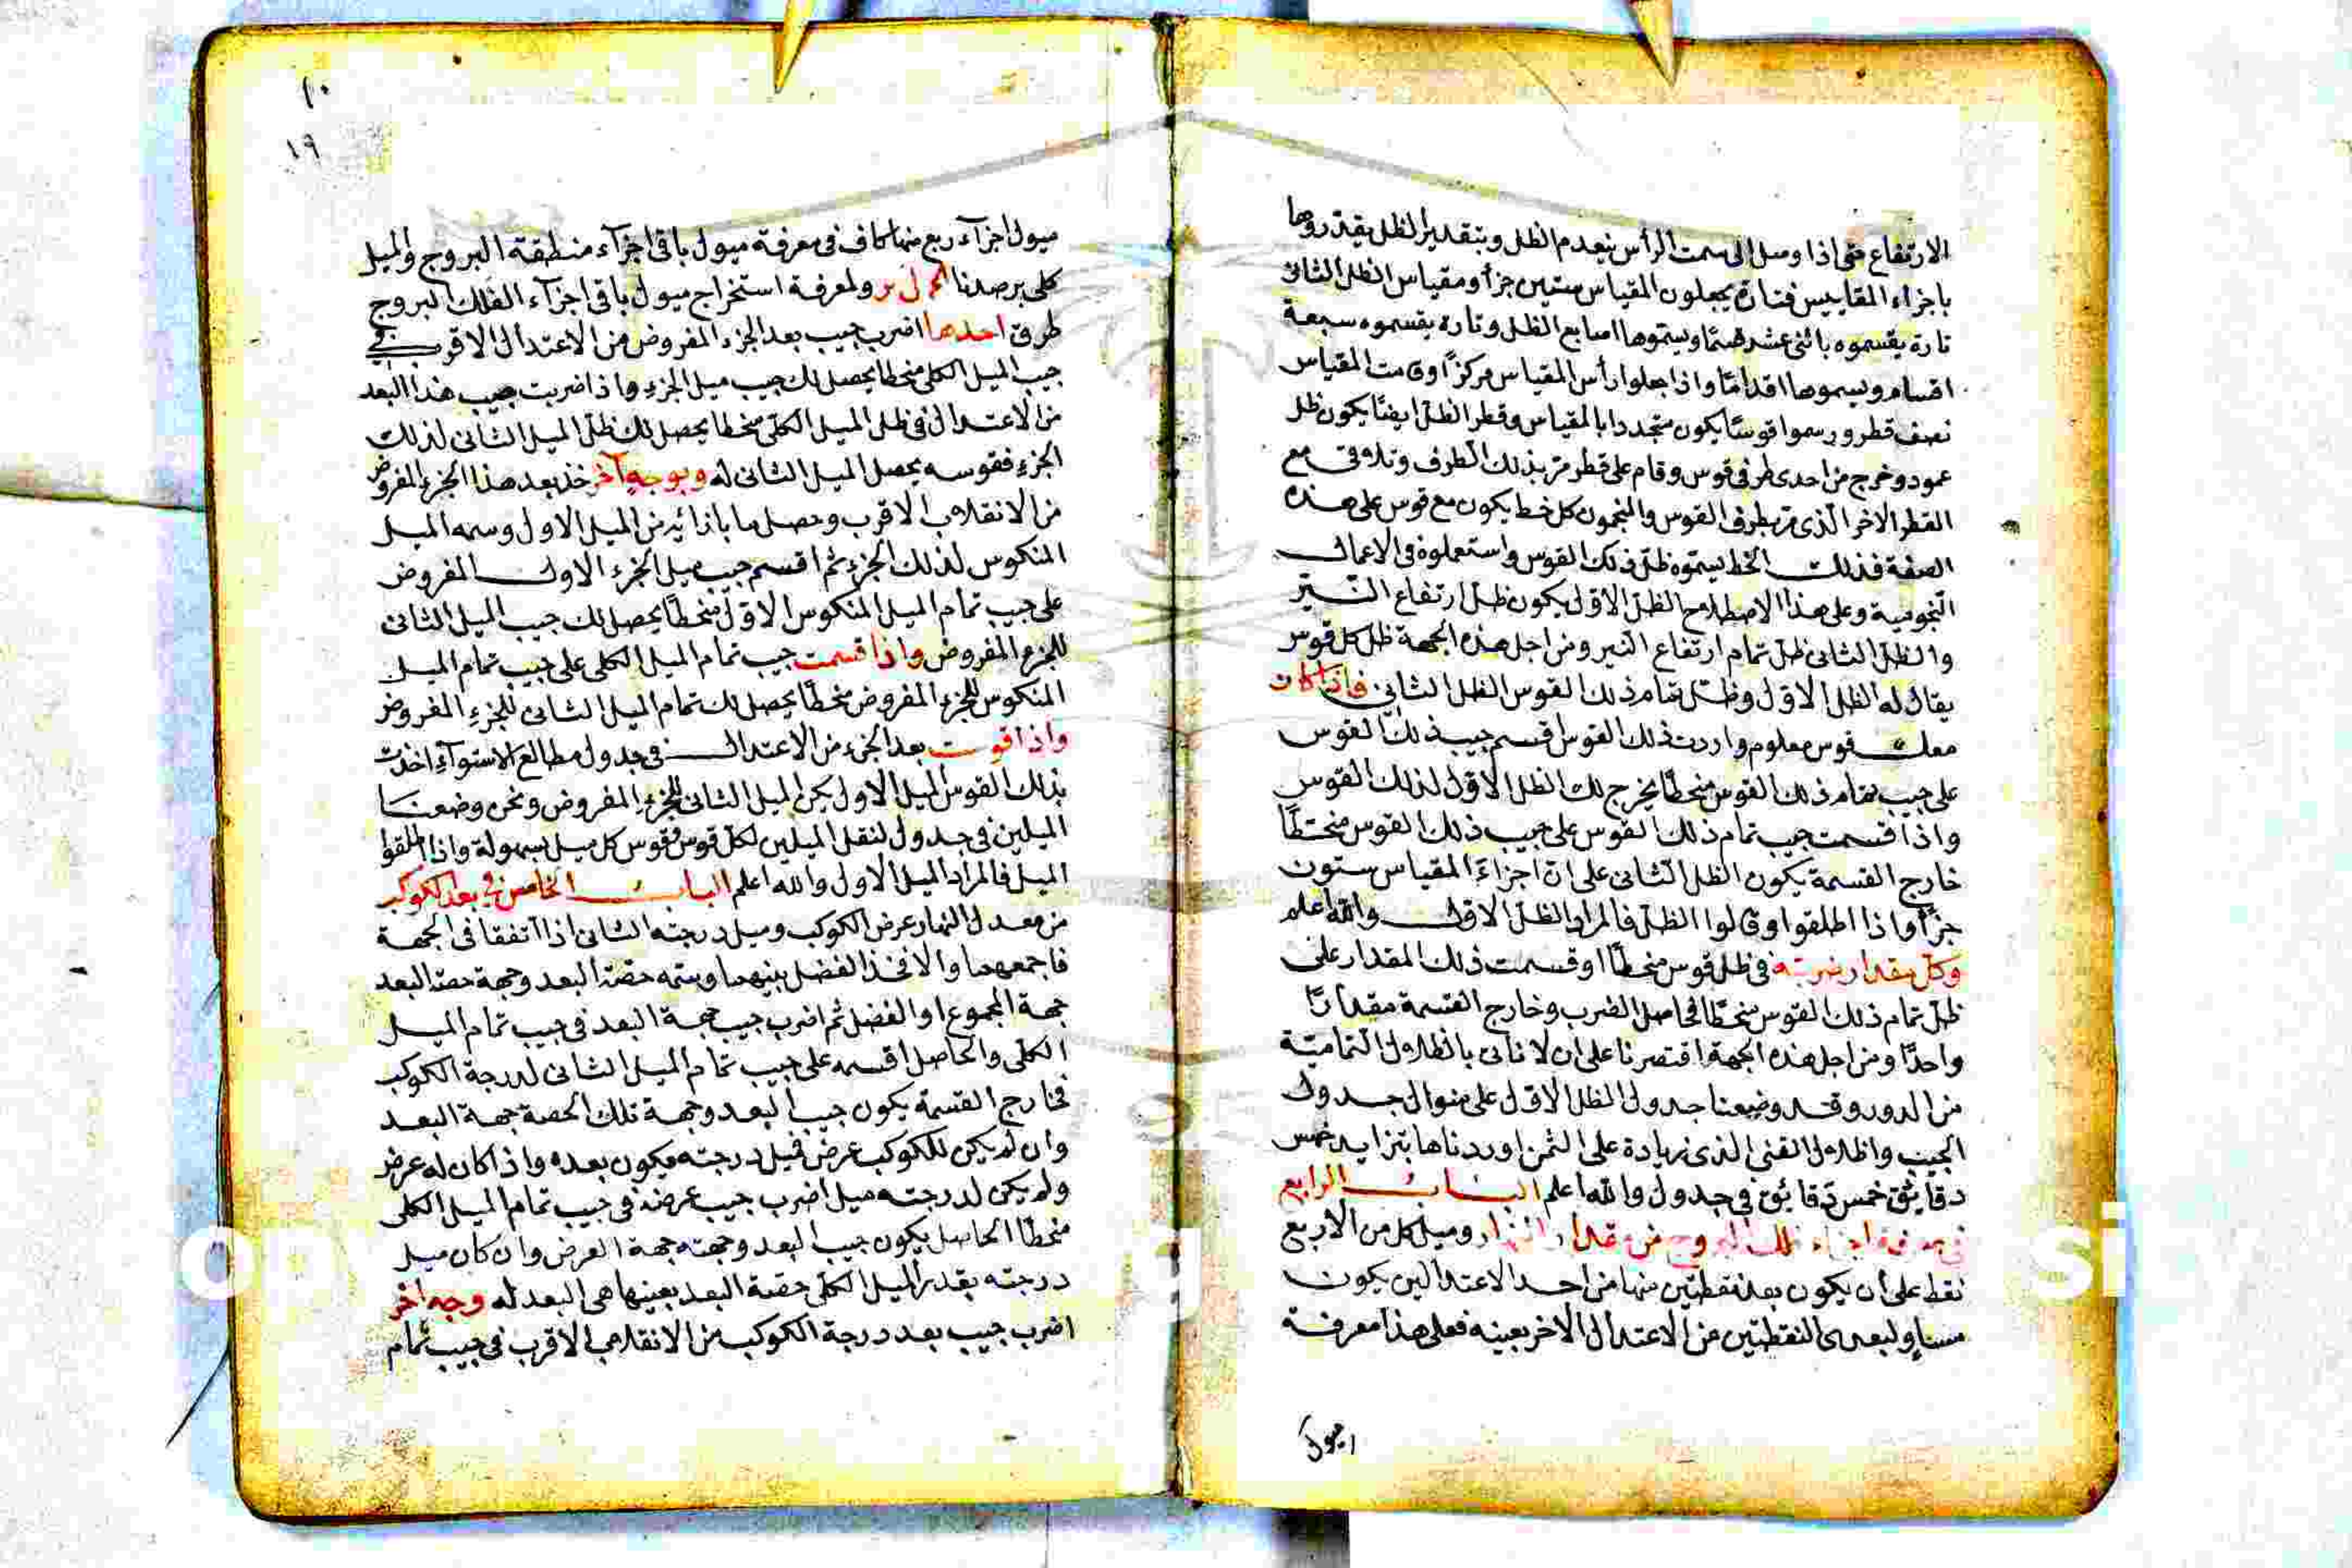 الارتفاع حتى اذا وصل الى سمت الرأس ينعدم الظل وبتقدير الظل يقدروها
باجزاء المقاييس فتارة يجعلون المقياس ستين جزأ ومقياس الظل الثانى
تارة يقسموه باثنى عشر قسمًا ويسموها اصابع الظل وتارة يقسموه سبعة
اقسام ويسموها اقدامًا واذا جعلوا رأس المقياس مركزًا وقامت المقياس
نصف قطر ورسموا قوسًا يكون متجددا بالمقياس وقطر الظل ايضًا يكون ظل
عمود وخرج من احدى طرفى قوس وقام على قطر مر بذلك الطرف وتلاقى مع
القطر الاخر الذى مر بطرف القوس والمنجمون كل خط يكون مع قوس على هذه
الصفة فذلك الخط يسموه ظل ذلك القوس واستعملوه فى الاعمال
النجومية وعلى هذا الاصطلاح الظل الاول يكون ظل ارتفاع النير
والظل الثانى ظل تمام ارتفاع النير ومن اجل هذه الجهة ظل كل قوس
يقال له الظل الاول وظل تمام ذلك القوس الظل الثانى فاذا كان
معك قوس معلوم واردت ذلك القوس اقسم جيب ذلك القوس
على جيب تمام ذلك القوس منحطًا يخرج لك الظل الاول لذلك القوس
واذا قسمت جيب تمام ذلك القوس على جيب ذلك القوس منحطًا
خارج القسمة يكون الظل الثانى على ان اجزاء المقياس ستون
جزًا واذا اطلقوا وقالوا الظل فالمراد الظل الاول والله اعلم
وكل مقدار ضربته فى ظل قوس منحطًا او قسمت ذلك المقدار على
ظل تمام ذلك القوس منحطًا فحاصل الضرب وخارج القسمة مقدارًا
واحدًا ومن اجل هذه الجهة اقتصرنا على ان لا ناتى بالظلال التمامية
من الدور وقد وضعنا جدول الظل الاول على منوال جدول
الجيب واظلال القسى الذى زيادة على الثمن اوردناها بتزايد خمس
دقايق خمس دقايق فى جدول والله اعلم الباب الرابع
فى معرفة اجزاء فلك البروج من معدل النهار وميل كل من الاربع
نقط على ان يكون بعد نقطتين منها من احد الاعتدالين يكون
مساوٍ لبعدى النقطتين من الاعتدال الاخر بعينه فعلى هذا معرفة
ميول
١٠
١٩
ميول اجزاء ربع منها كاف فى معرفة ميول باقى اجزاء منطقة البروج والميل
كلى برصدنا ولمعرفة استخراج ميول باقى اجزاء الفلك البروج
طرق احدها اضرب جيب بعد الجزء المفروض من الاعتدال الاقرب فى
جيب الميل الكلى منحطا يحصل لك جيب ميل الجزء واذا ضربت جيب هذا البعد
من الاعتدال فى ظل الميل الكلى منحطا يحصل لك ظل الميل الثانى لذلك
الجزء فقوسه يحصل الميل الثانى له وبوجه آخر خذ بعد هذا الجزء المفروض
من الانقلاب الاقرب وحصل ما بازائه من الميل الاول وسمه الميل
المنكوس لذلك الجزء ثم اقسم جيب ميل الجزء الاول المفروض
على جيب تمام الميل المنكوس الاول منحطًا يحصل لك جيب الميل الثانى
للجزء المفروض واذا قسمت جيب تمام الميل الكلى على جيب تمام الميل
المنكوس للجزء المفروض منحطًا يحصل لك تمام الميل الثانى للجزء المفروض
واذا قوست بعد الجزء من الاعتدال فى جدول مطالع الاستواء اخذت
بذلك القوس الميل الاول يكن الميل الثانى للجزء المفروض ونحن وضعنا
الميلين فى جدول لنقل الميلين لكل قوس وقوس كل ميل بسهولة واذا اطلقوا
الميل فالمراد الميل الاول والله اعلم الباب الخامس فى بعد الكوكب
من معدل النهار عرض الكوكب وميل درجته الثانى اذا اتفقا فى الجهة
فاجمعهما والا فخذ الفضل بينهما وسمه حصة البعد وجهة حصة البعد
جهة المجموع او الفضل ثم اضرب جيب حصة البعد فى جيب تمام الميل
الكلى والحاصل اقسمه على جيب تمام الميل الثانى لدرجة الكوكب
فخارج القسمة يكون جيب البعد وجهة تلك الحصة جهة البعد
وان لم يكن للكوكب عرض فميل درجته يكون بعده واذا كان له عرض
ولم يكن لدرجته ميل اضرب جيب عرضه فى جيب تمام الميل الكلى
منحطًا الحاصل يكون جيب البعد وجهته جهة العرض وان كان ميل
درجته بقدر الميل الكلى حصة البعد بعينها هى البعد له وجه آخر
اضرب جيب بعد درجة الكوكب من الانقلاب الاقرب فى جيب تمام